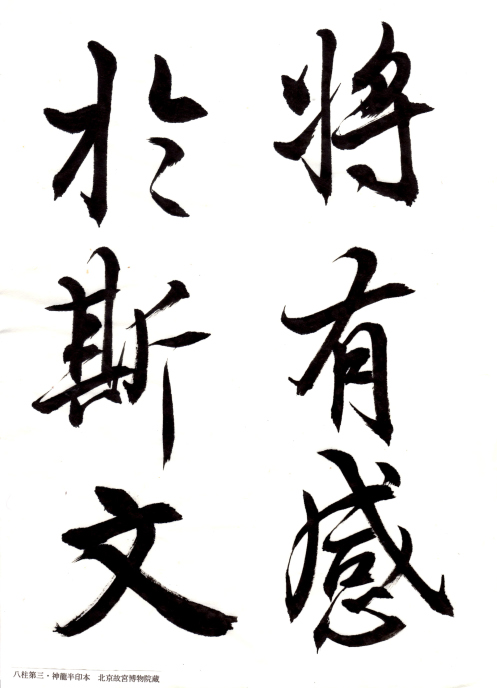 将有感
於斯文
八柱第三・神龍半印本 北京故宮博物院蔵